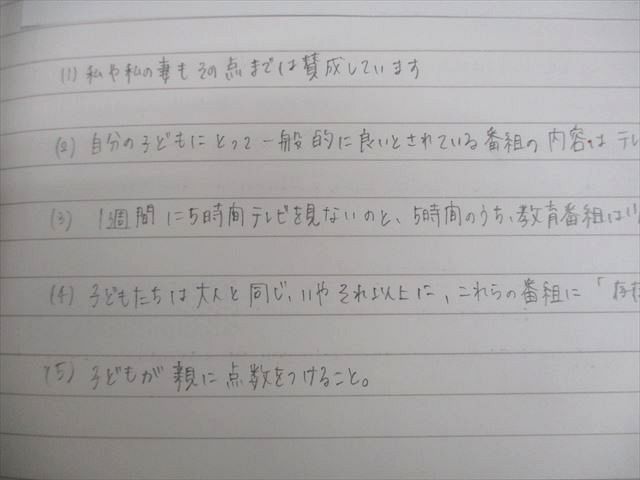 (1) 私や私の妻もその点までは賛成しています
(2) 自分の子どもにとって一般的に良いとされている番組の内容はテレ
(3) 1週間に5時間テレビを見ないのと、5時間のうち、教育番組はい
(4) 子どもたちは大人と同じ、いやそれ以上に、これらの番組に「存在
(5) 子どもが親に点数をつけること。